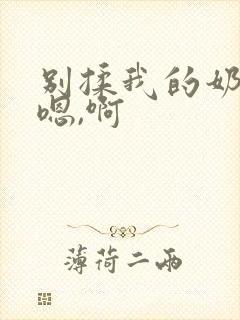 别揉我的奶
嗯,啊
薄荷二两